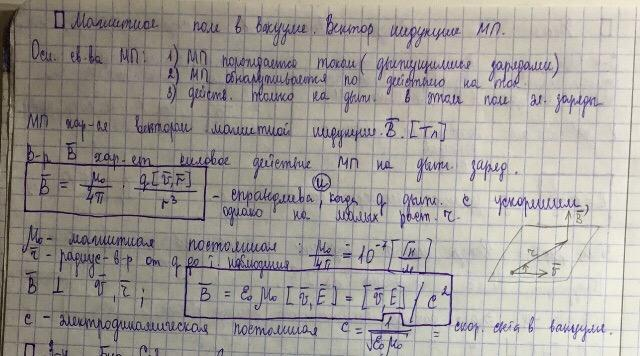 □ Магнитное поле в вакууме. Вектор индукции МП.
Осн. св-ва МП: 1) МП порождается током (движущимися зарядами)
2) МП обнаруживается по действию на ток.
3) действ. только на движ. в этом поле эл. заряды
МП хар-ся вектором магнитной индукции B̄. [Тл]
В-р B̄ хар-ет силовое действие МП на движ. заряд.
B̄ = μ₀/4π · q[v̄,r̄]/r³ - справедлива и, когда q движ. с ускорением,
однако на малых раст. r.
μ₀ - магнитная постоянная: μ₀/4π = 10⁻⁷ [Гн/м]
r̄ - радиус-в-р от q до т. наблюдения
B̄ ⊥ v̄, r̄; B̄ = ε₀μ₀ [v̄,Ē] = [v̄,Ē] / c²
c - электродинамическая постоянная c = 1/√ε₀μ₀ = скор. света в вакууме.
B̄
r
q
v̄